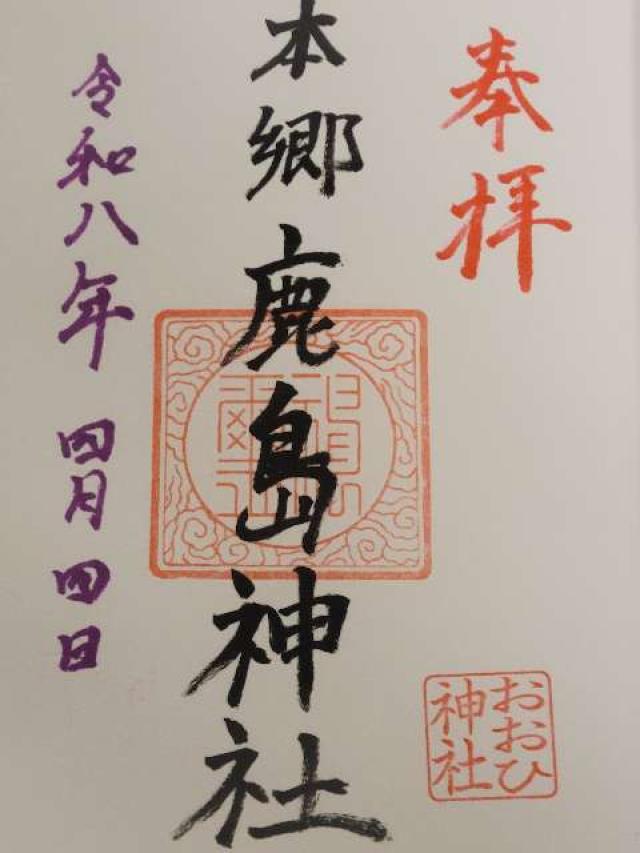 奉拝
本郷鹿島神社
令和八年 四月 四日
おおひ
神社